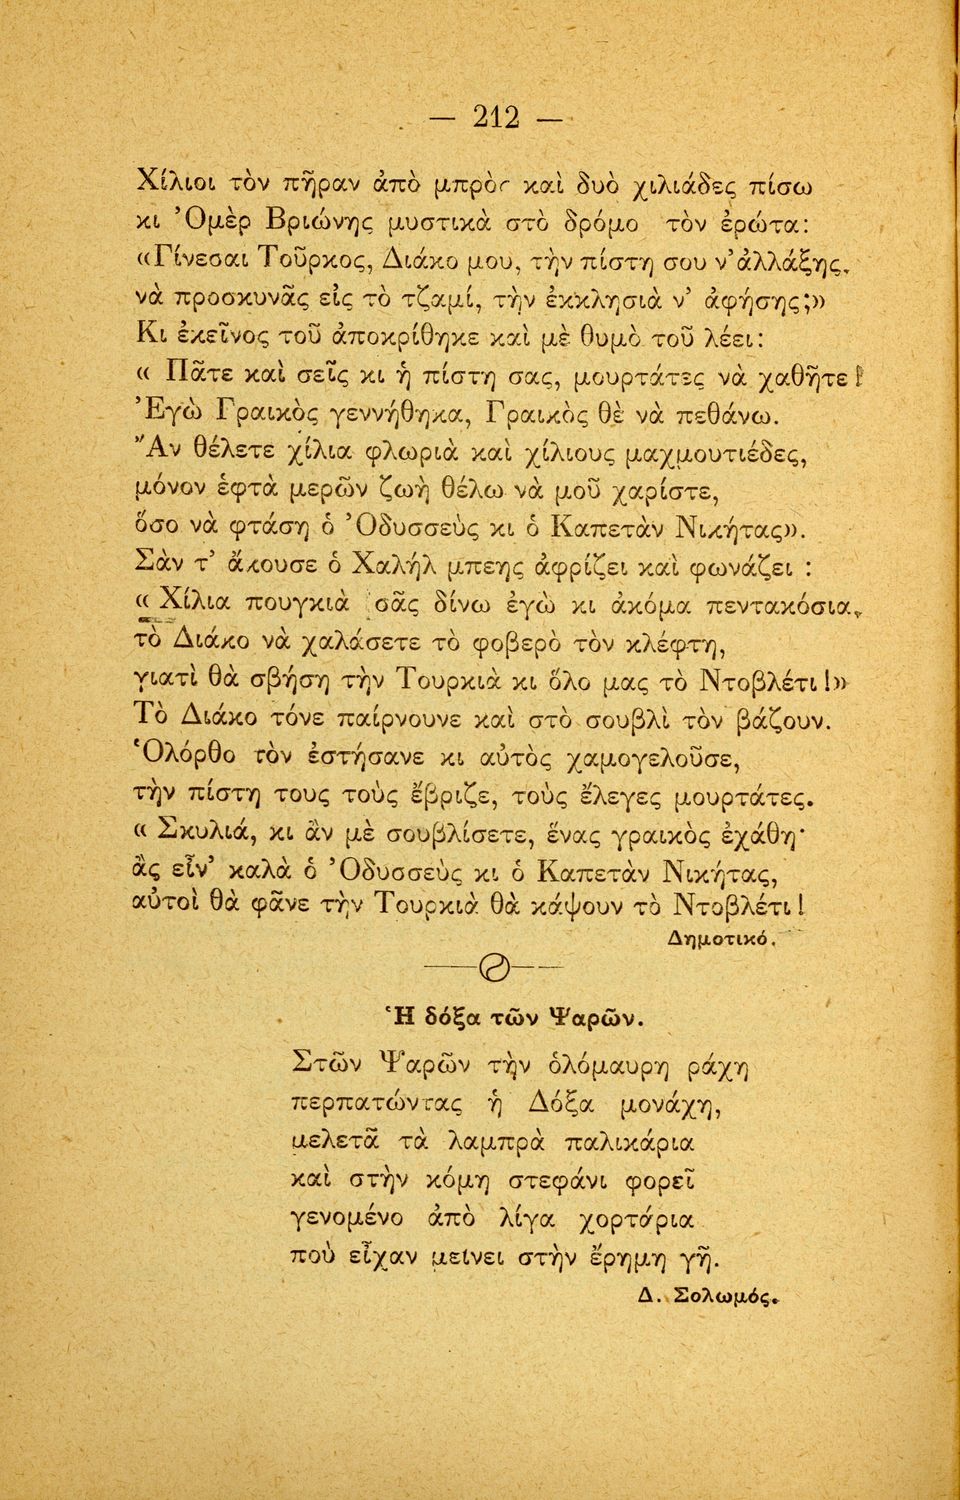 — 212 —
Χίλιοι τὸν πῆραν ἀπὸ μπρὸς καὶ δυὸ χιλιάδες πίσω
κι Ὀμὲρ Βριώνης μυστικὰ στὸ δρόμο τὸν ἐρώτα:
«Γίνεσαι Τοῦρκος, Διάκο μου, τὴν πίστη σου ν' ἀλλάξης,
νὰ προσκυνᾶς εἰς τὸ τζαμί, τὴν ἐκκλησιὰ ν' ἀφήσης;»
Κι ἐκεῖνος τοῦ ἀποκρίθηκε καὶ μὲ θυμὸ τοῦ λέει:
« Πᾶτε καὶ σεῖς κι ἡ πίστη σας, μουρτάτες νὰ χαθῆτε!
Ἐγὼ Γραικὸς γεννήθηκα, Γραικὸς θὲ νὰ πεθάνω.
Ἂν θέλετε χίλια φλωριὰ καὶ χίλιους μαχμουτιέδες,
μόνον ἑφτὰ μερῶν ζωὴ θέλω νὰ μοῦ χαρίστε,
ὅσο νὰ φτάση ὁ Ὀδυσσεὺς κι ὁ Καπετὰν Νικήτας».
Σὰν τ' ἄκουσε ὁ Χαλὴλ μπεης ἀφρίζει καὶ φωνάζει :
« Χίλια πουγκιὰ σᾶς δίνω ἐγὼ κι ἀκόμα πεντακόσια,
τὸ Διάκο νὰ χαλάσετε τὸ φοβερὸ τὸν κλέφτη,
γιατὶ θὰ σβήση τὴν Τουρκιὰ κι ὅλο μας τὸ Ντοβλέτι!»
Τὸ Διάκο τόνε παίρνουνε καὶ στὸ σουβλὶ τὸν βάζουν.
Ὁλόρθο τὸν ἐστήσανε κι αὐτὸς χαμογελοῦσε,
τὴν πίστη τους τοὺς ἔβριζε, τοὺς ἔλεγες μουρτάτες.
« Σκυλιά, κι ἂν μὲ σουβλίσετε, ἕνας γραικὸς ἐχάθη·
ἂς εἶν' καλὰ ὁ Ὀδυσσεὺς κι ὁ Καπετὰν Νικήτας,
αὐτοὶ θὰ φᾶνε τὴν Τουρκιὰ θὰ κάψουν τὸ Ντοβλέτι!
Δημοτικό.
Ἡ δόξα τῶν Ψαρῶν.
Στῶν Ψαρῶν τὴν ὁλόμαυρη ράχη
περπατώντας ἡ Δόξα μονάχη,
μελετᾶ τὰ λαμπρὰ παλικάρια
καὶ στὴν κόμη στεφάνι φορεῖ
γενομένο ἀπὸ λίγα χορτάρια
ποὺ εἶχαν μείνει στὴν ἔρημη γῆ.
Δ. Σολωμός.